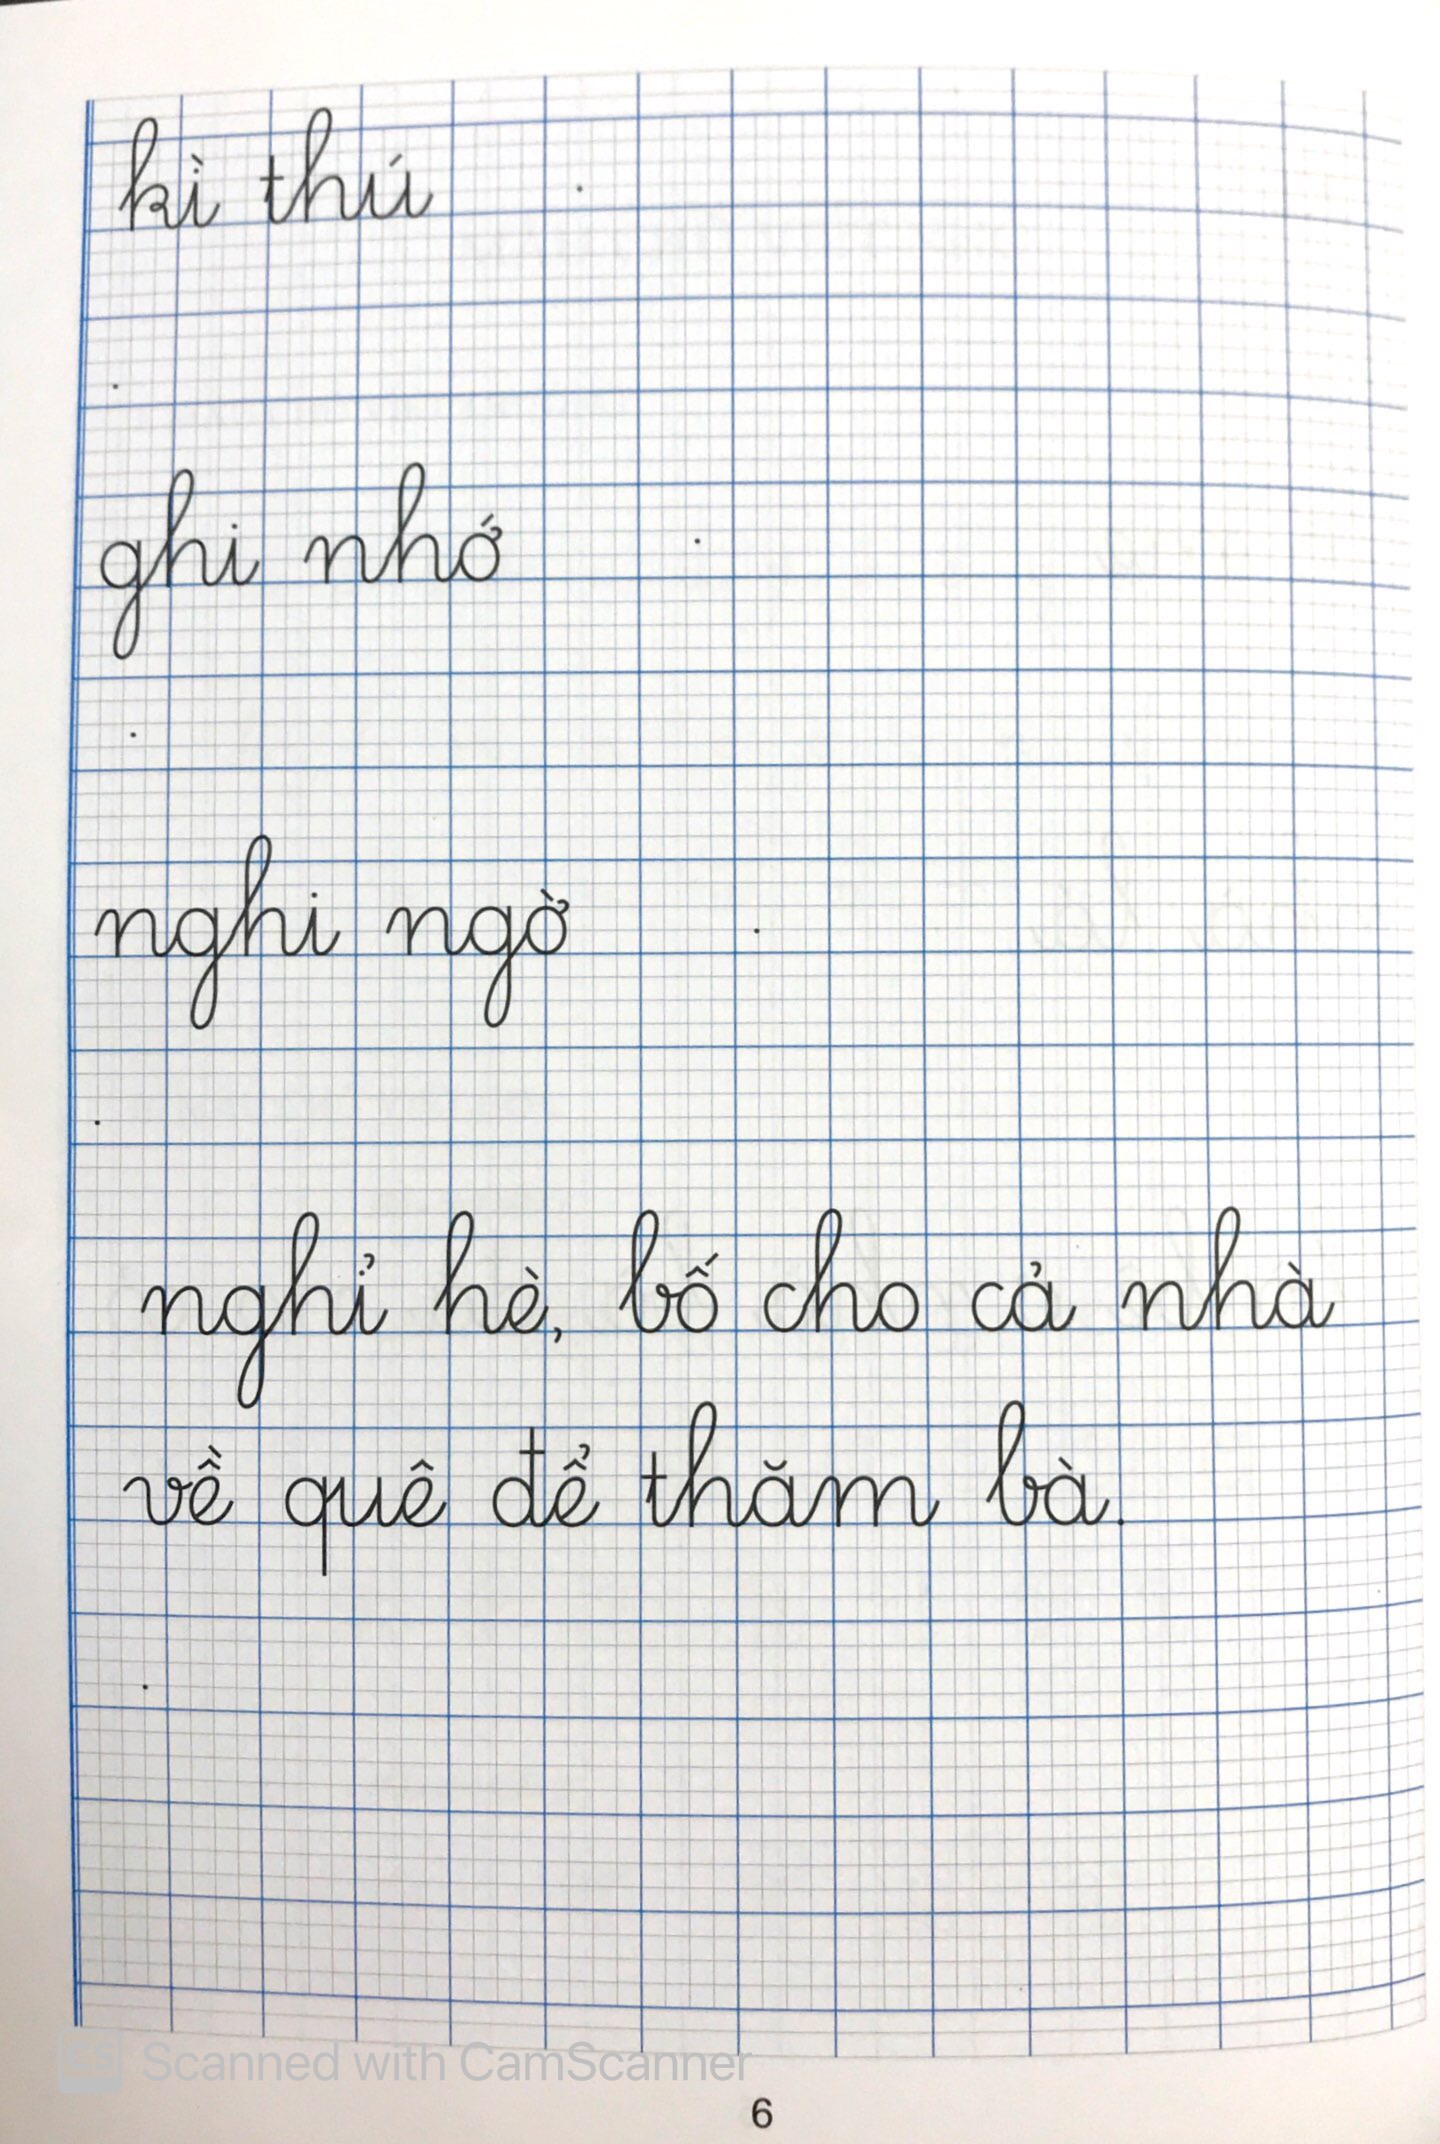 kì thú
ghi nhớ
nghi ngờ
nghỉ hè, bố cho cả nhà
về quê để thăm bà.
CS Scanned with CamScanner
6